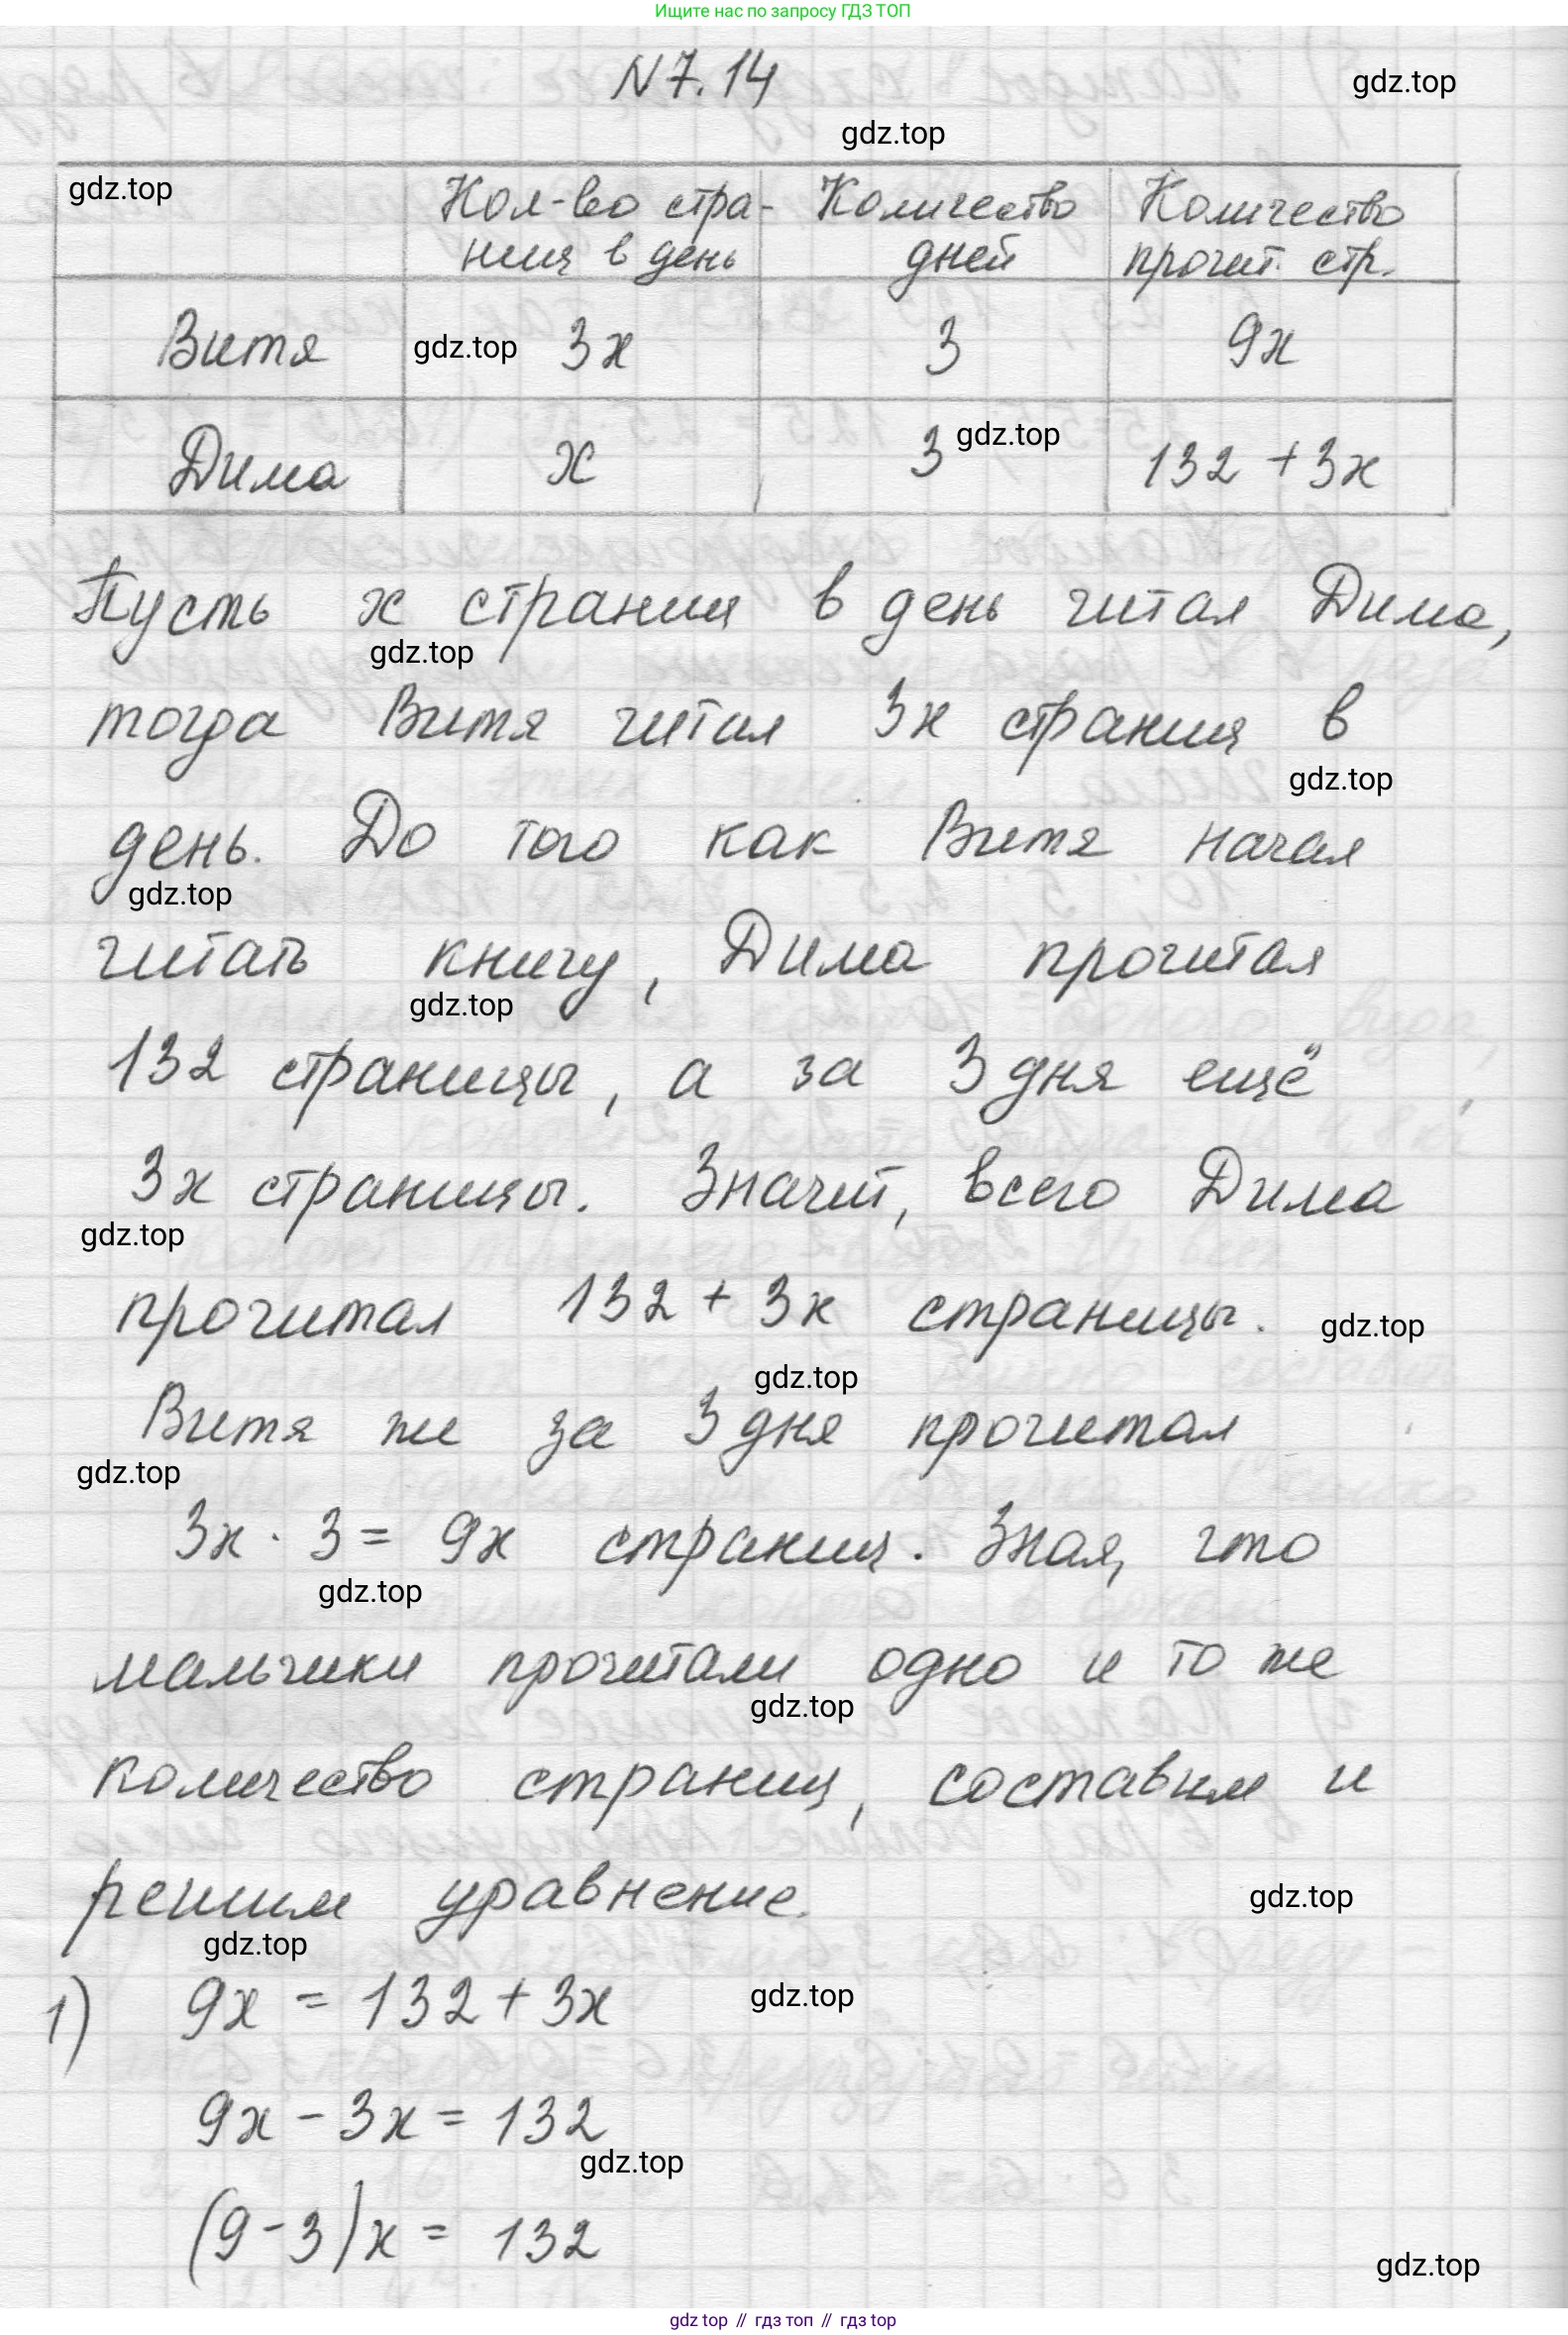 Ищите нас по запросу ГДЗ ТОП
N 7.14
gdz.top
gdz.top
gdz.top
Кол-во стра-
ниц в день
Количество
дней
Количество
прочит. стр.
Витя gdz.top 3x 3 9x
Дима x 3 gdz.top 132 + 3x
Пусть x страниц в день читал Дима,
gdz.top
тогда Витя читал 3x страниц в
gdz.top
день. До того как Витя начал
gdz.top
читать книгу, Дима прочитал
gdz.top
132 страницы, а за 3 дня ещё
3x страницы. Значит, всего Дима
gdz.top
прочитал 132 + 3x страницы.
gdz.top
gdz.top
Витя же за 3 дня прочитал
gdz.top
3x · 3 = 9x страниц. Зная, что
gdz.top
мальчики прочитали одно и то же
gdz.top
количество страниц, составим и
решим уравнение.
gdz.top
gdz.top
1) 9x = 132 + 3x
gdz.top
9x - 3x = 132
gdz.top
(9 - 3)x = 132
gdz.top
gdz top // гдз топ // гдз top